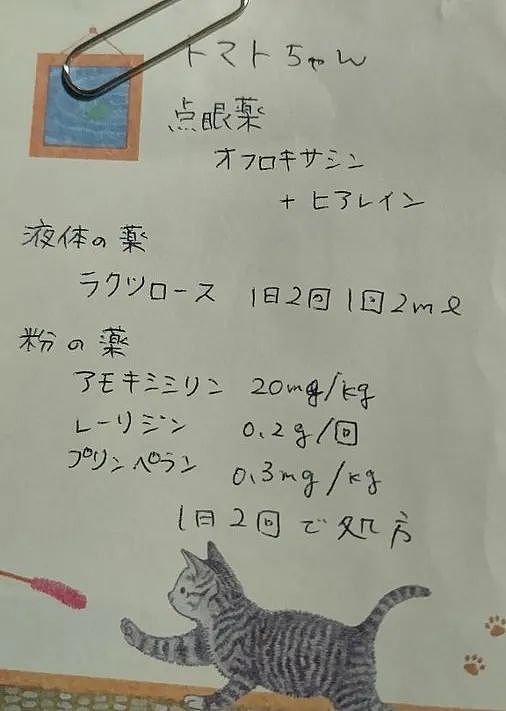 トマトちゃん
点眼薬
オフロキサシン
+ ヒアレイン
液体の薬
ラクツロース 1日2回 1回2mℓ
粉の薬
アモキシシリン 20mg/kg
レーリジン 0.2g/回
プリンペラン 0.3mg/kg
1日2回で処方